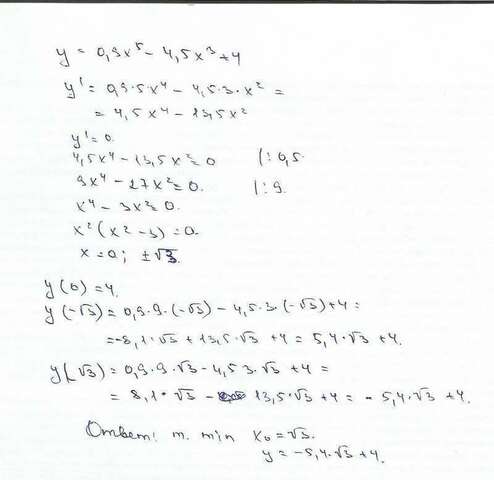 y = 0,9x⁵ - 4,5x³ + 4
y' = 0,9·5x⁴ - 4,5·3·x² =
= 4,5x⁴ - 13,5x²
y' = 0.
4,5x⁴ - 13,5x² = 0 |: 0,5.
9x⁴ - 27x² = 0. |: 9.
x⁴ - 3x² = 0.
x²(x² - 3) = 0.
x = 0; ±√3.
y(0) = 4.
y(-√3) = 0,9·9·(-√3) - 4,5·3·(-√3) + 4 =
= -8,1·√3 + 13,5·√3 + 4 = 5,4·√3 + 4.
y(√3) = 0,9·9·√3 - 4,5·3·√3 + 4 =
= 8,1·√3 - 13,5·√3 + 4 = -5,4·√3 + 4.
Ответ: т. min x₀ = √3.
y = -5,4·√3 + 4.